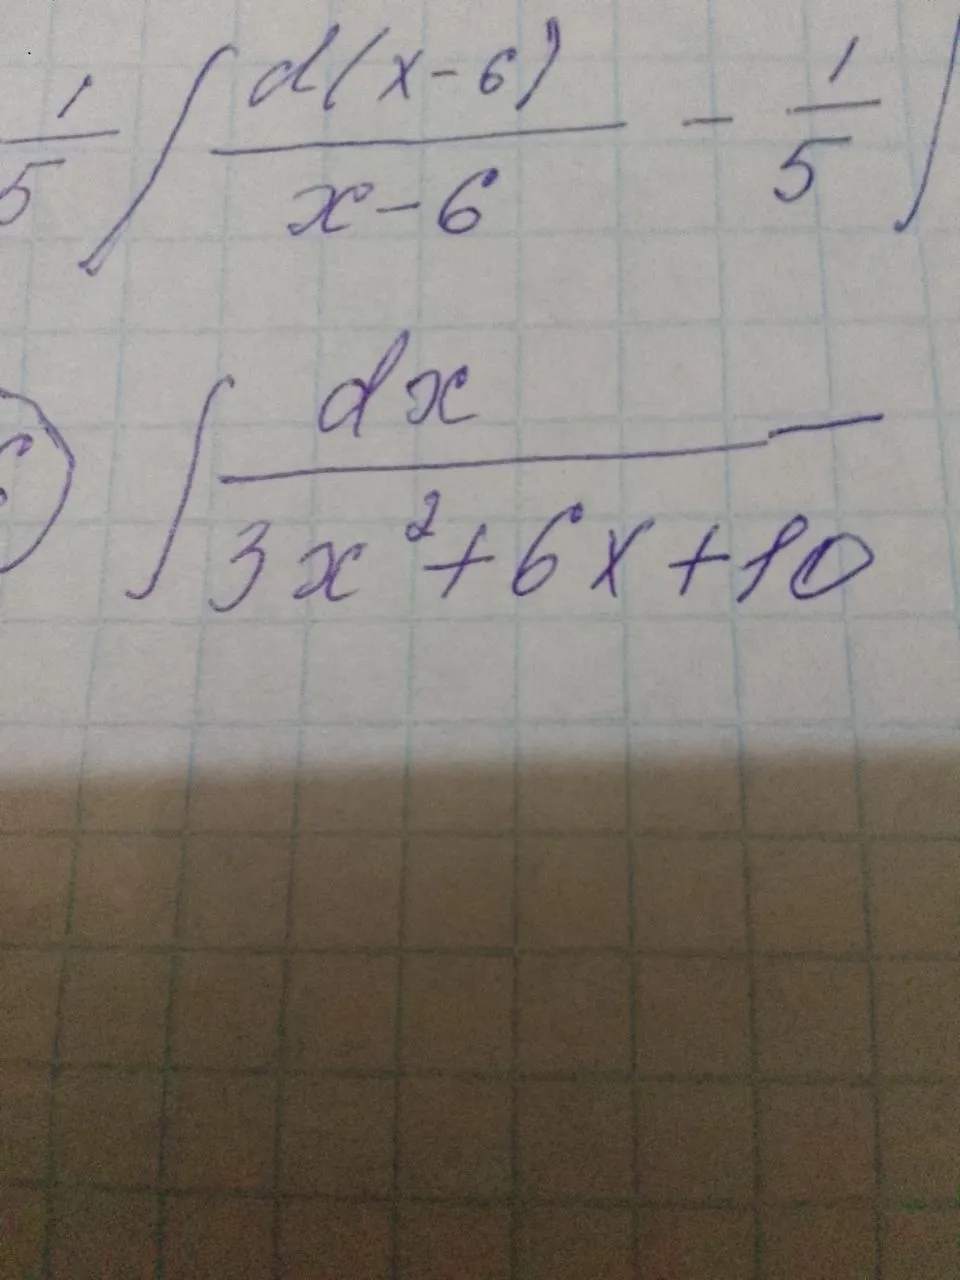 1/5 ∫ d(x-6)/(x-6) - 1/5 ∫
∫ dx/(3x²+6x+10)